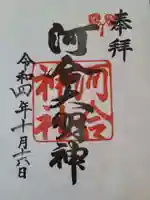 奉拝
河合大明神
河合神社
令和四年十月十六日